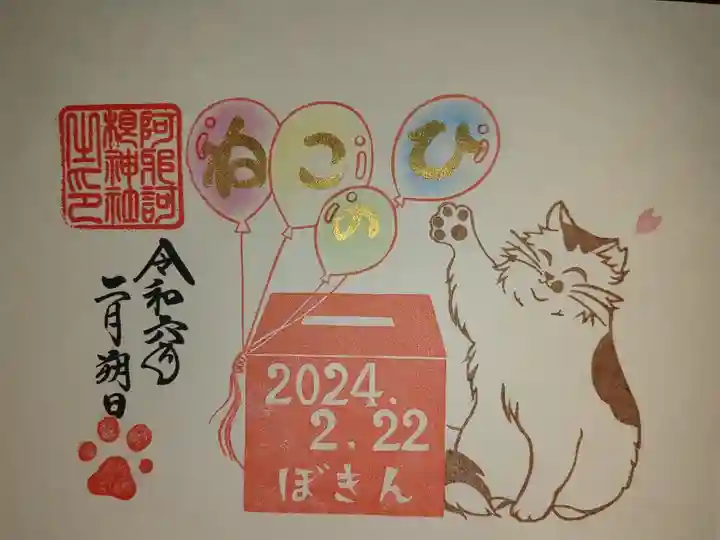 阿邪訶
根神社
之印
ねこ
の
ひ
令和六年
二月朔日
2024.
2.22
ぼきん